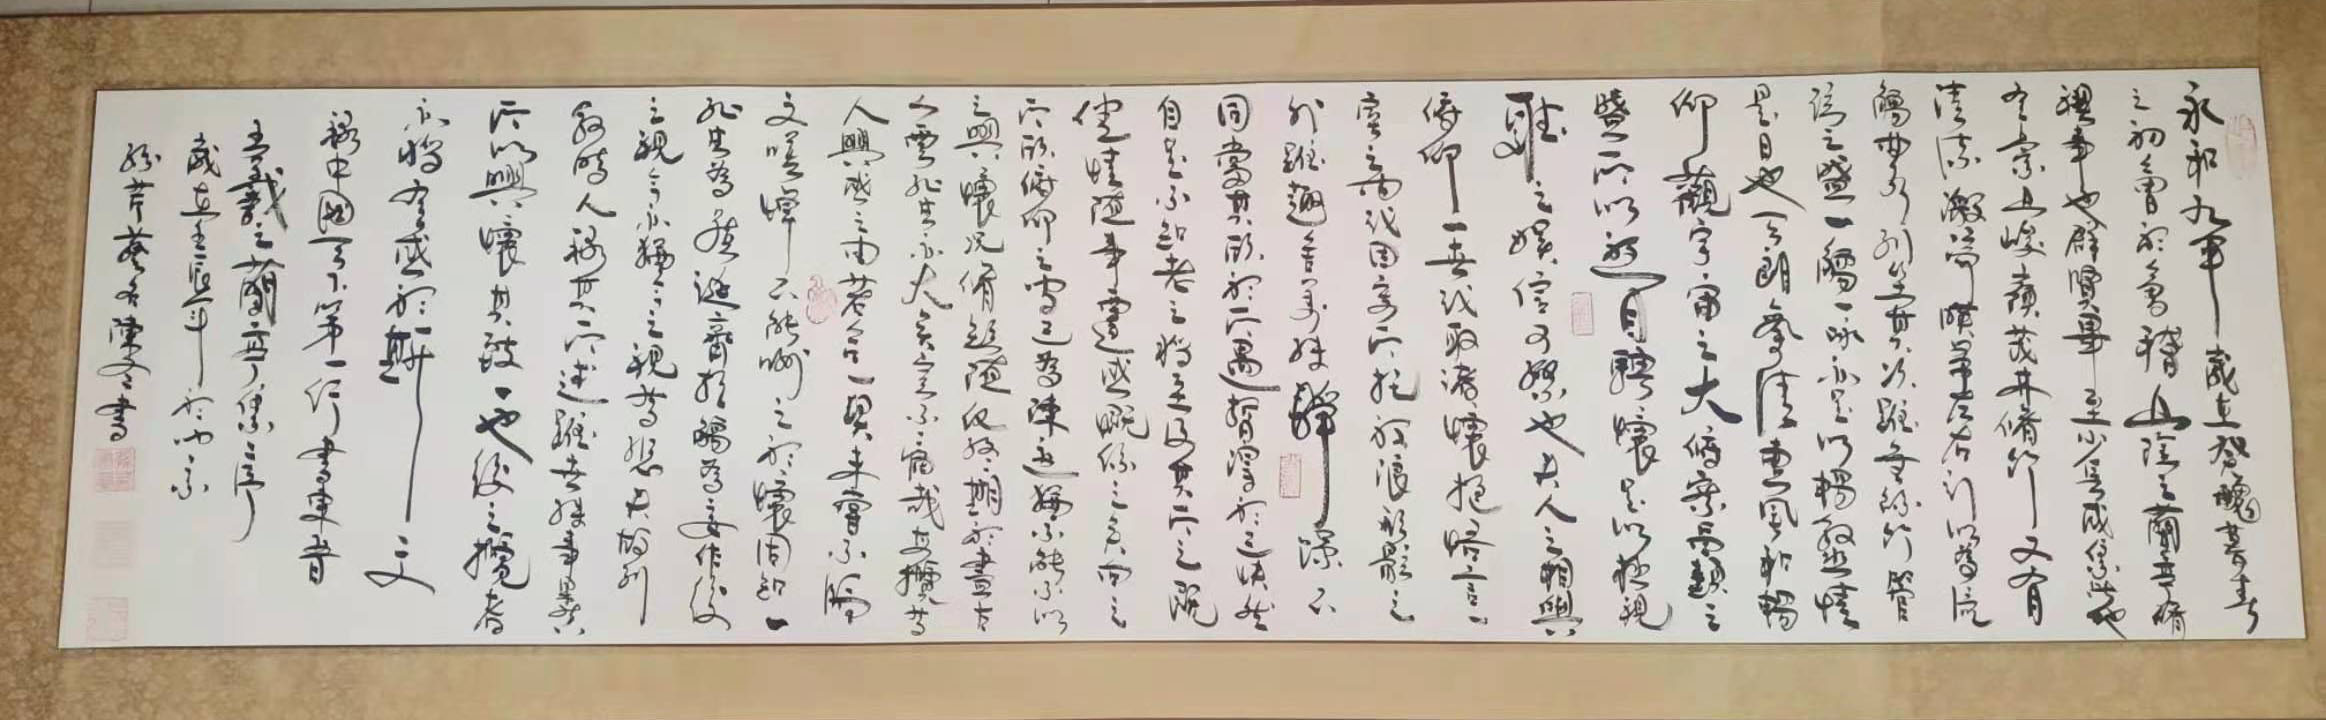 永和九年歲在癸醜暮春
之初會於會稽山陰之蘭亭脩
禊事也群賢畢至少長咸集此地
有崇山峻嶺茂林脩竹又有
清流激湍暎帶左右引以為流
觴曲水列坐其次雖無絲竹管
弦之盛一觴一詠亦足以暢敘幽情
是日也天朗氣清惠風和暢
仰觀宇宙之大俯察品類之
盛所以遊目騁懷足以極視
聽之娛信可樂也夫人之相與
俯仰一世或取諸懷抱悟言一
室之內或因寄所託放浪形骸之
外雖趣舍萬殊靜躁不
同當其欣於所遇暫得於己快然
自足不知老之將至及其所之既
倦情隨事遷感慨係之矣向之
所欣俯仰之間已為陳跡猶不能不以
之興懷況脩短隨化終期於盡古
人云死生亦大矣豈不痛哉每攬昔
人興感之由若合一契未嘗不臨
文嗟悼不能喻之於懷固知一
死生為虛誕齊彭殤為妄作後
之視今亦猶今之視昔悲夫故列
敘時人錄其所述雖世殊事異
所以興懷其致一也後之攬者
亦將有感於斯文
錄中國天下第一行書東晉
王羲之蘭亭集序
歲在壬辰年於北京